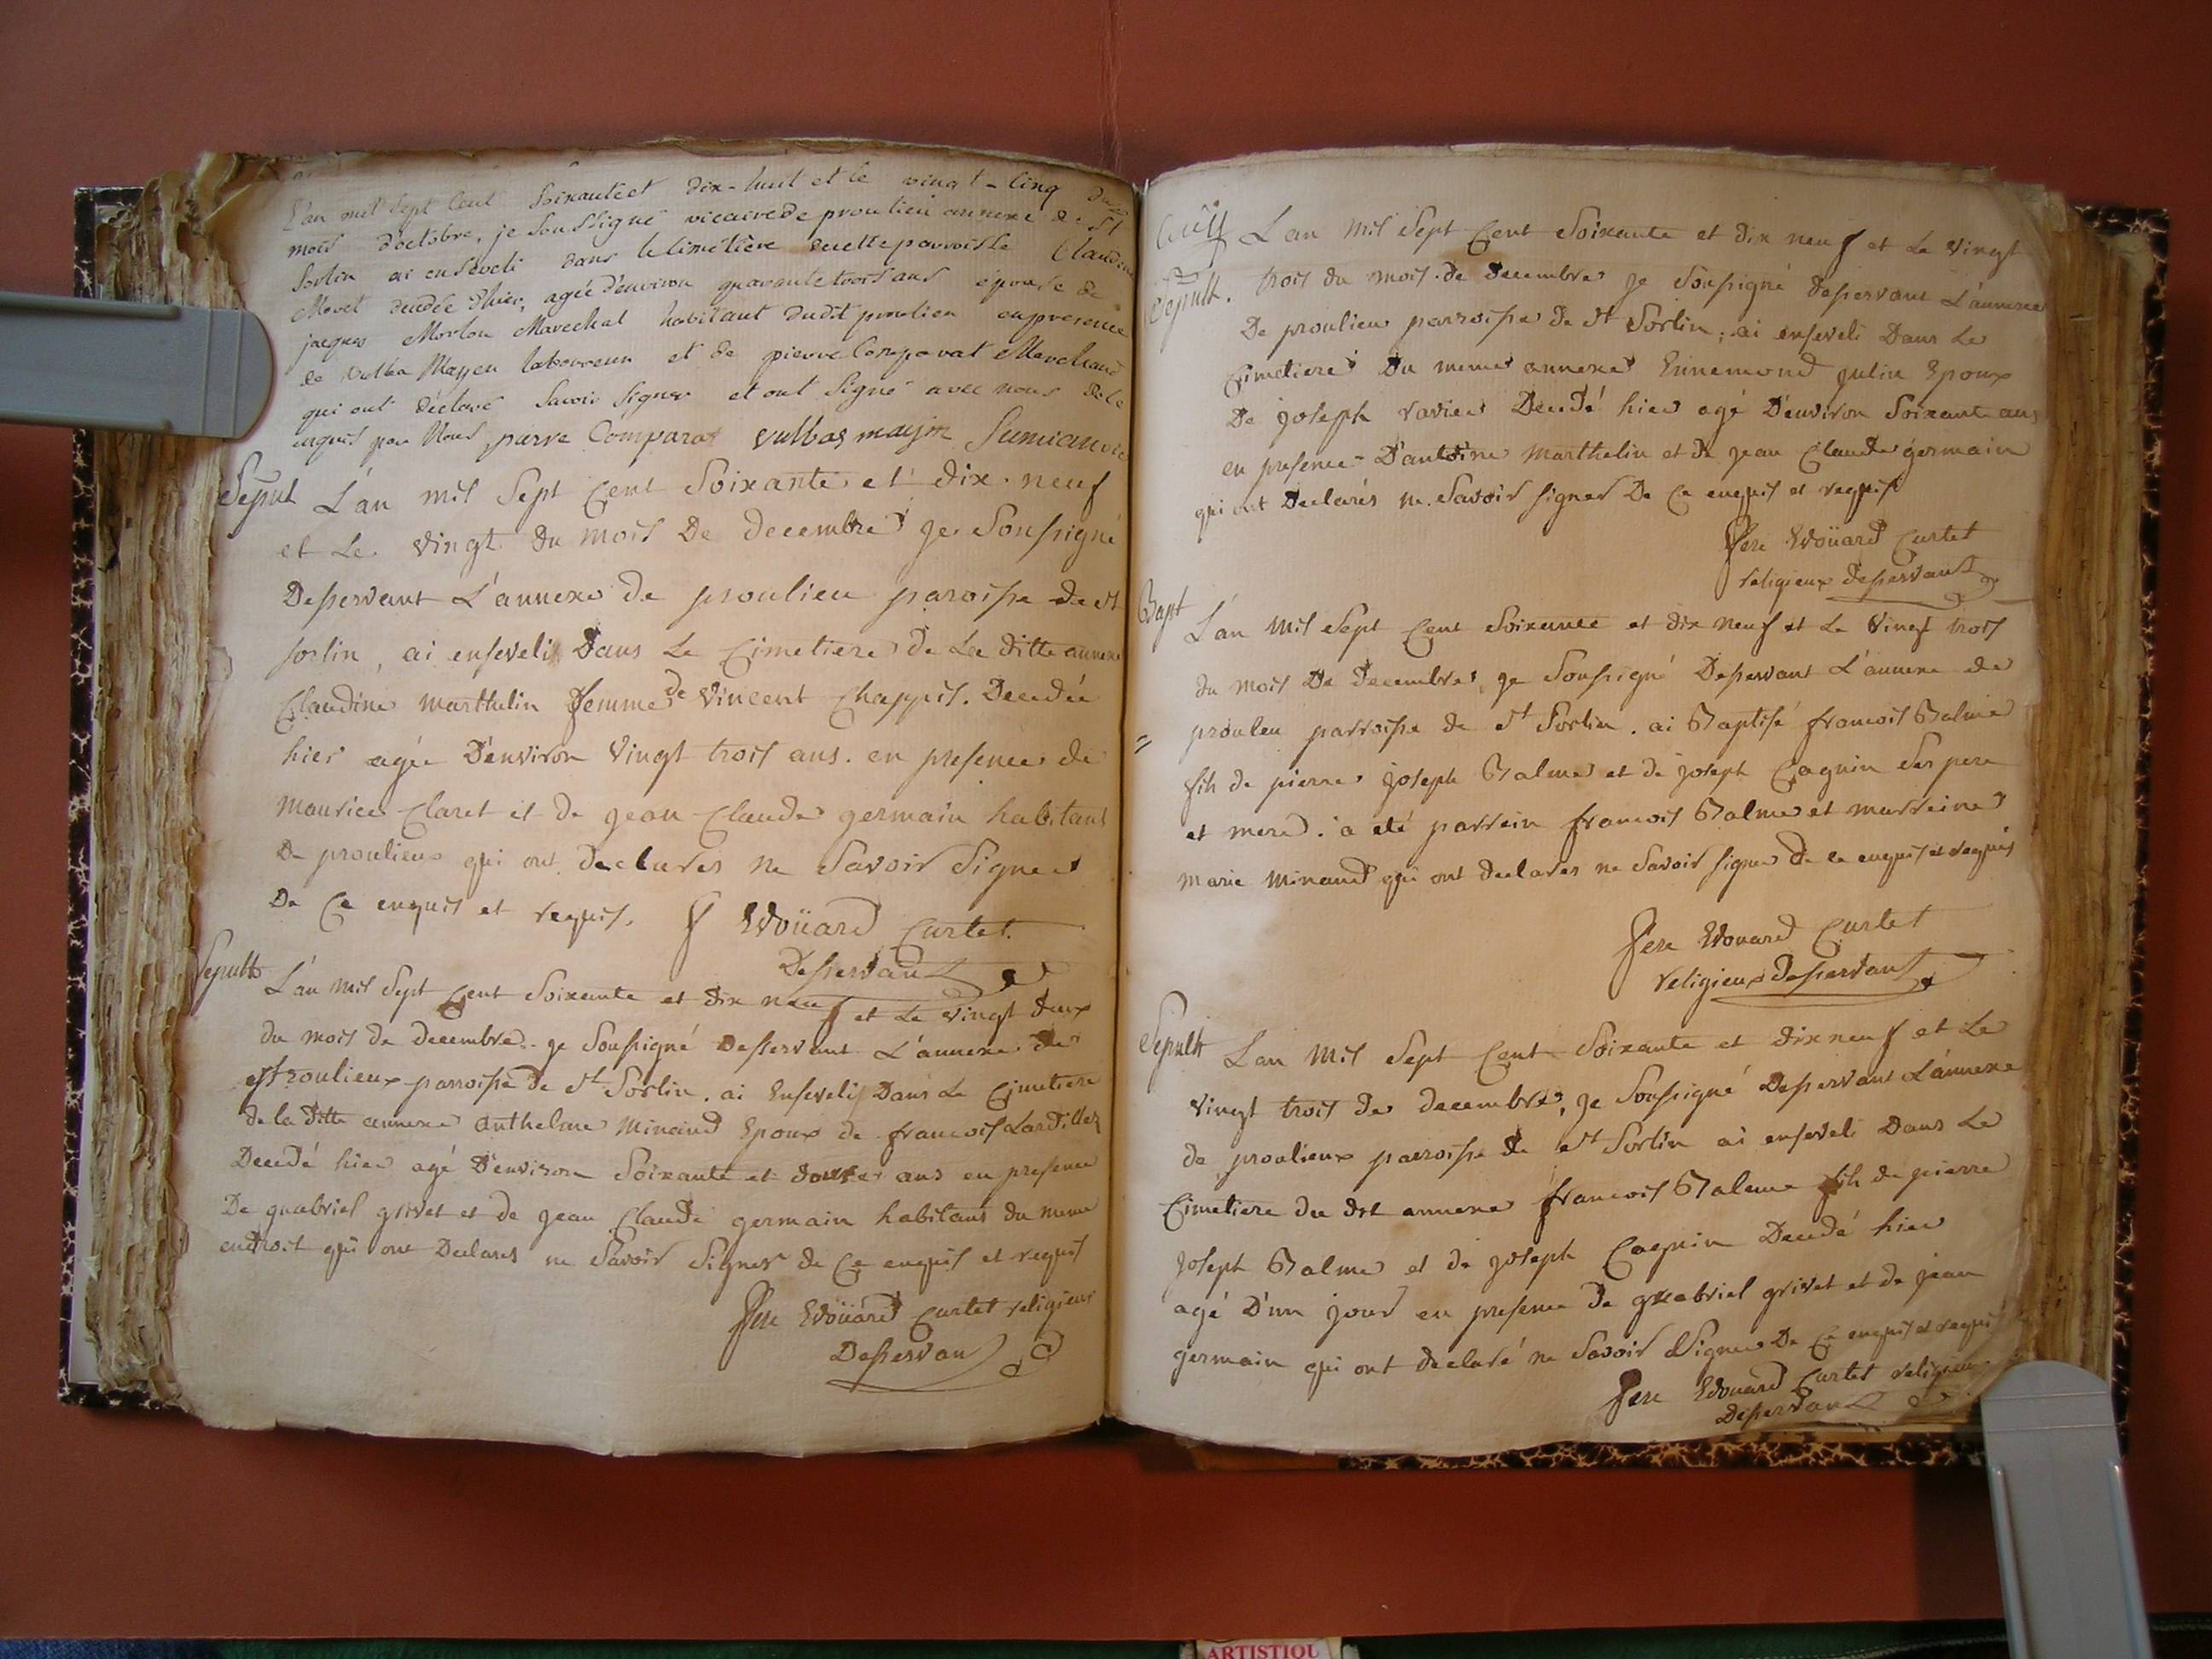 L'an mil sept Cent Soixante et dix-huit et le vingt-Cinq du
mois d'octobre, je Soussigné vicaire de proulieu annexe de St
Sorlin ai enseveli dans le Cimetière de cette parroisse Claudine
Morel décédée d'hier, agée d'environ quarante trois ans épouse de
jacques Morlon Marechal habitant dudit proulieu en presence
de Mayen laboureur et de pierre Comparat Marchand
qui ont déclaré Savoir Signer et ont Signé avec nous de ce
enquis par Nous, parre Comparat vulbas
Sepult L'an mil Sept Cent Soixante et dix. neuf
et Le vingt du mois De decembre je Soussigné
Desservant L'annexe de proulieu paroisse de st
sorlin, ai enseveli Dans Le Cimetiere de La ditte annexe
Claudine marthelin femme de Vincent Chappis. Decedée
hier agée D'environ Vingt trois ans. en presence de
maurice Claret et de jean Claude germain habitans
De proulieux qui ont declares ne Savoir Signer
De Ce enquis et requis. f Edoüard Curtet.
Desservant
Sepult L'an mil Sept Cent Soixante et dix neuf et Le vingt deux
du mois de decembre. je Soussigné Desservant L'annexe de
proulieux parroisse de st Sorlin. ai Enseveli Dans Le Cimetiere
de la ditte annexe anthelme minand Epoux de francois Lardillez
Decedé hier agé D'environ Soixante et douse ans en presence
De guabriel grivet et de jean Claude germain habitans du meme
endroit qui ont Declares ne Savoir Signer de Ce enquis et requis
fere Edoüard Curtet religieux
Desservan
Sepult. L an mil Sept Cent Soixante et dix neuf et Le vingt
trois du mois de decembre je Soussigné desservant L'annexe
De proulieu parroisse de st Sorlin, ai enseveli Dans Le
Cimetiere Du meme annexe Ennemond julin Epoux
De joseph ravier Decedé hier agé D'environ Soixante ans
en presence D'antoine marthelin et de jean Claude germain
qui ont Declarés ne Savoir signer De Ce enquis et requis
fere Edoüard Curtet
religieux desservant
Bapt L'an mil Sept Cent Soixante et dix neuf et Le Vingt trois
du mois De decembre, je Soussigné Desservant L'annexe de
prouleu parroisse de st Sorlin. ai Baptisé francois Balme
fils de pierre joseph Balme et de joseph Cagnin Ses pere
et mere. a eté parrein francois Balme et marreine
marie minand qui ont declares ne Savoir signer de ce enquis et requis
fere Edouard Curtet
religieux desservant
Sepult L an mil Sept Cent Soixante et dix neuf et Le
vingt trois de decembre, je Soussigné Desservant L'annexe
de proulieux parroisse de st Sorlin ai enseveli Dans Le
Cimetiere du dit annexe francois Balme fils de pierre
joseph Balme et de joseph Cagnin Decedé hier
agé D'un jour en presence de guabriel grivet et de jean
germain qui ont declaré ne Savoir Signer De Ce enquis et requis
fere Edouard Curtet religieux
Desservant
ARTISTIQU